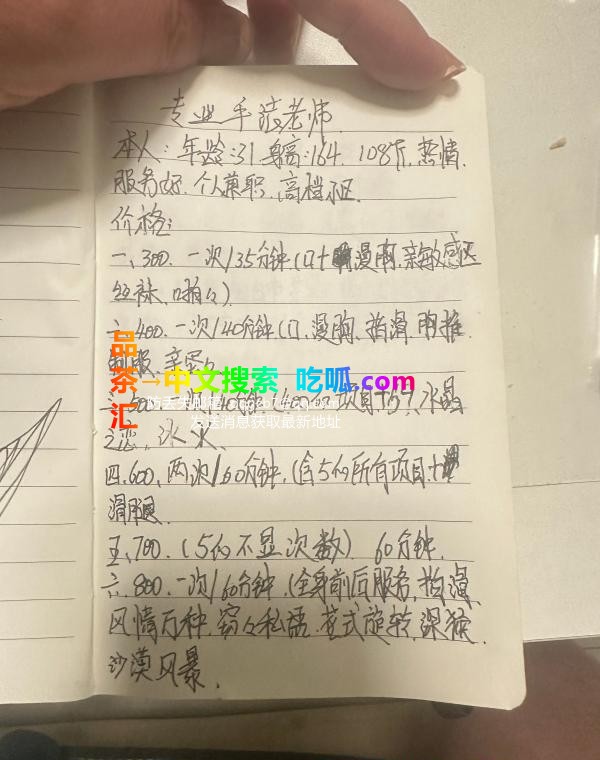 专业手
老师
本人：年龄:31 身高:164. 108斤, 热情.
服务好. 个人兼职, 高档小区.
价格:
一、300. 一次/35分钟(口+漫胸, 亲敏感区
丝袜, 啪々)
二、400. 一次/40分钟(口, 漫胸, 指滑, 胸推
制服,
品茶汇
→中文搜索 吃呱.com
防丢失邮箱
发送消息获取最新地址
冰火
四.600, 两次/60分钟, (含5的所有项目+
滑腿
五、700. (5的不显次数) 60分钟.
六、800. 一次/60分钟 (全身前后服务, 指漫
风情万种, 窃々私语, 花式旋转, 深猴
沙漠风暴.